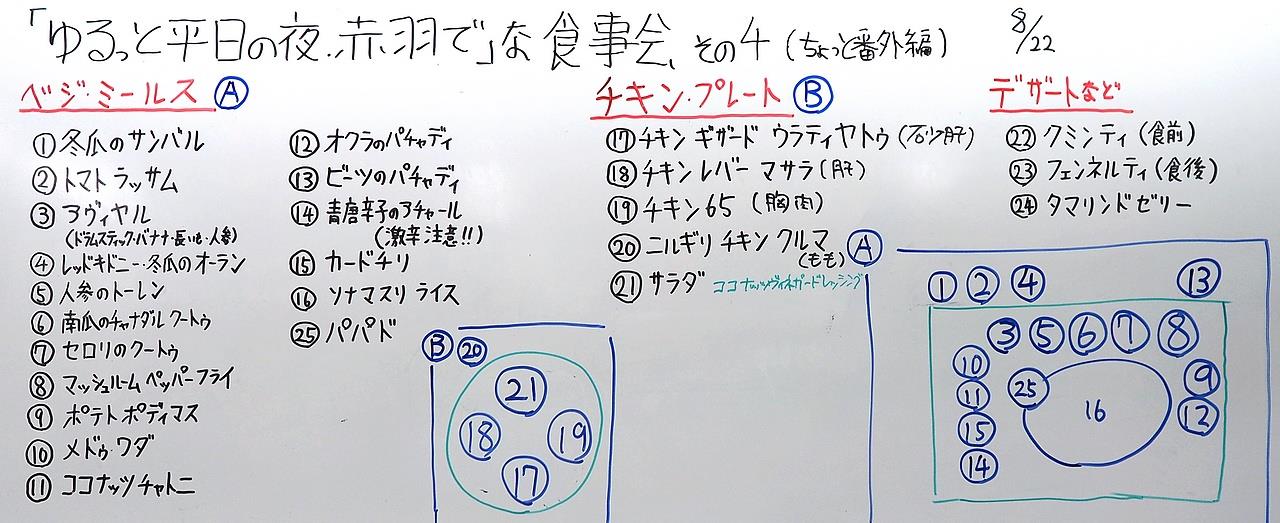 「ゆるっと平日の夜、赤羽で」な食事会、その4 (ちょっと番外編) 8/22
ベジ・ミールス Ⓐ
① 冬瓜のサンバル
② トマトラッサム
③ アヴィヤル
(ドラムスティック・バナナ・長いも・人参)
④ レッドキドニー・冬瓜のオーラン
⑤ 人参のトーレン
⑥ 南瓜のチャナダル クートゥ
⑦ セロリのクートゥ
⑧ マッシュルームペッパーフライ
⑨ ポテトポディマス
⑩ メドゥ・ワダ
⑪ ココナッツチャトニ
⑫ オクラのパチャディ
⑬ ビーツのパチャディ
⑭ 青唐辛子のアチャール
(激辛注意!!)
⑮ カードチリ
⑯ ソナマスリ ライス
㉕ パパド
チキン・プレート Ⓑ
⑰ チキン ギザード ウラティヤトゥ (石少肝)
⑱ チキンレバー マサラ (肝)
⑲ チキン65 (胸肉)
⑳ ニルギリ チキン クルマ
(もも)
㉑ サラダ ココナッツヴィネガードレッシング
デザートなど
㉒ クミンティ (食前)
㉓ フェンネルティ (食後)
㉔ タマリンドゼリー
Ⓑ ⑳
㉑
⑱ ⑲
⑰
Ⓐ
① ② ④ ⑬
③ ⑤ ⑥ ⑦ ⑧
⑩ ㉕ 16 ⑨
⑪ ⑫
⑮
⑭